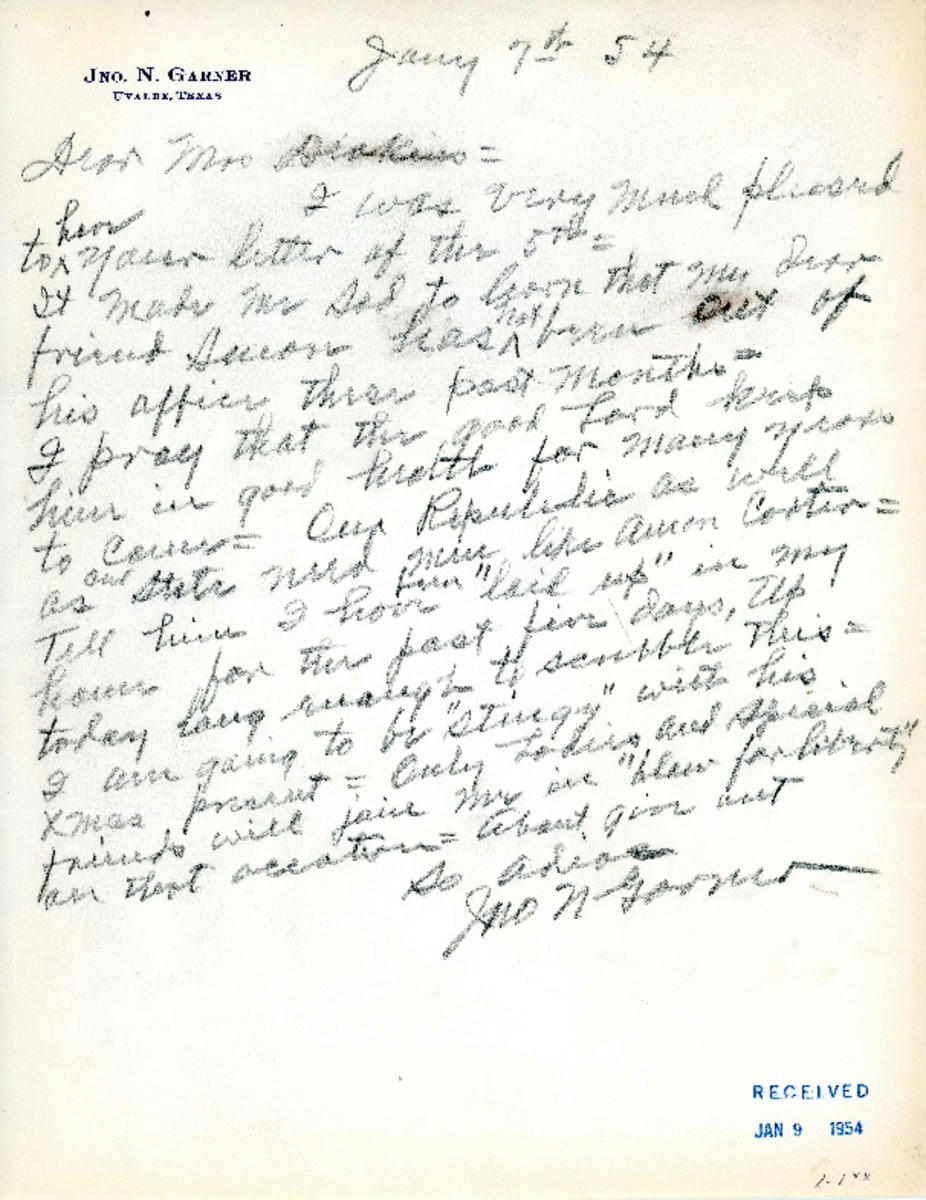 Jany 7th 54
JNO. N. GARNER
UVALDE, TEXAS
Dear Mrs =
I was very much pleased
to have your letter of the 5th =
It made me sad to learn that my dear
friend Amon has not been out of
his office these past months =
I pray that the good Lord keeps
him in good health for many years
to come = Our Republic as well
as our State need men like Amon Carter =
Tell him I have been "laid up" in my
home for the past five days, Up
today long enough to scribble this =
I am going to be "stingy" with his
Xmas present = Only Ladies and special
friends will join me in "blow for liberty"
on that occation = About give out
So adios
Jno N Garner
RECEIVED
JAN 9 1954